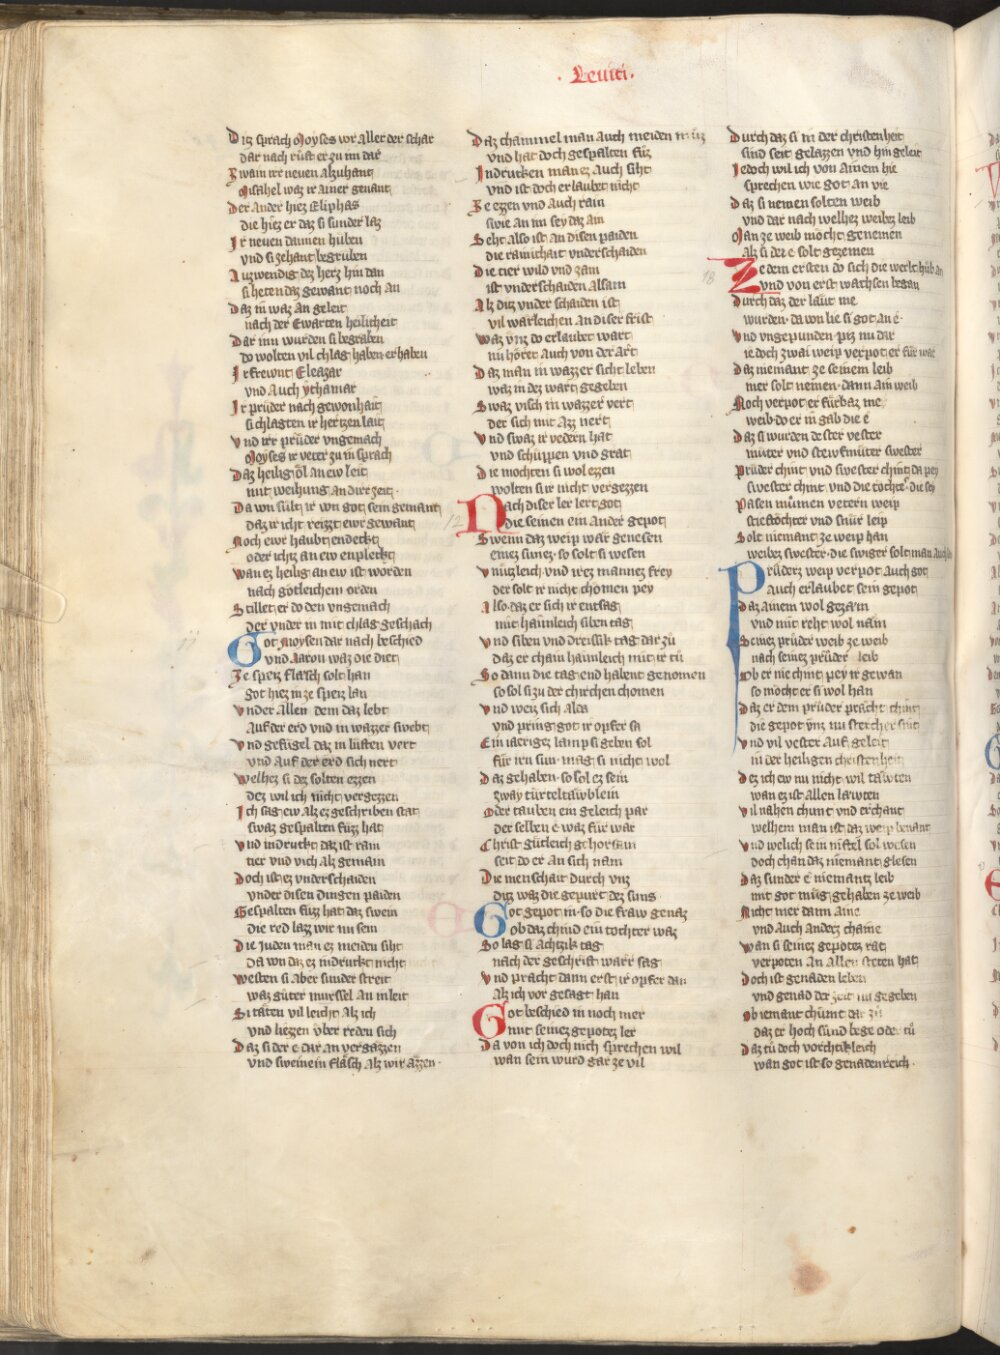 Leuiti.
Ditz sprach Moyses vor aller der schar
dar nach rüft er zu im dar
Zwain irr neuen alzuhant
Misahel waz ir ainer genant
Der ander hiez Eliphas
die hiez er daz si sunder laz
Ir neuen dannen hüben
vnd si zehant begruben
Auzwendig dez herz hin dan
si heten daz gewant noch an
Daz in waz an geleit
nach der Ewarten heilicheit
Dar inn wurden si begraben
do wolten vil chlag haben erhaben
Ir frewnt Eleazar
vnd Auch ythamar
Ir prüder nach gewonhait
si chlagten ir hertzen lait
Vnd irr prüder vngemach
Moyses ir veter zu in sprach
Daz heilig öl an ew leit
mit weihung an dirr zeit
Da von sült ir von got sein gemant
daz ir icht reizzt ewr gewant
Noch ewr haubt endeckt
oder ichtz an ew enpleckt
Wan ez heilig an ew ist worden
nach götleichem orden
Stillet er do den vngemach
der vnder in mit chlag geschach
Got Moysen dar nach beschied
vnd Aaron waz die diet
Ze speiz flaisch solt han
got hiez in ze speiz lan
Vnder allen dem daz lebt
Auf der erd vnd in wazzer swebt
Vnd gefügel daz in lüften vert
vnd Auf der erd sich nert
Welhez si dez solten ezzen
dez wil ich nicht vergezzen
Ich sag ew alz ez geschriben stat
swaz gespalten füzz hat
Vnd indruckt daz ist rain
tier vnd vich alz gemain
Doch ist ez vnderschaiden
vnder disen dingen paiden
Gespalten füzz hat daz swein
die red lazz wir nu sein
Die Juden man ez meiden siht
Da von daz ez indruckt nicht
Westen si aber sunder streit
waz güter mursel an in leit
Si täten vil leicht alz ich
vnd liezzen vber reden sich
Daz si der e dar an vergäzzen
vnd sweinein flaisch alz wir äzzen
Daz chammel man auch meiden müz
vnd hat doch gespalten füz
Indrucken man ez auch siht
vnd ist doch erlaubet nicht
Ze ezzen vnd auch rain
swie an im sey daz ain
Seht also ist an disen paiden
die rainichait vnderschaiden
Die tier wild vnd zam
ist vnderschaiden alsam
Alz ditz vnder schaiden ist
vil wärleichen an diser frist
Waz vnz do erlaubet wart
nu höret auch von der art
Daz man in wazzer sicht leben
waz in dez wart gegeben
Swaz visch in wazzer vert
der sich mit azz nert
Vnd swaz ir vedern hat
vnd schüppen vnd grat
Die mochten si wol ezzen
wolten si ir nicht vergezzen
Nach diser ler lert got
die seinen ein ander gepot
Swenn daz weip wär genesen
einez sunez so solt si wesen
Vnnützleich vnd irez mannez frey
der solt ir nicht chomen pey
Also daz er sich ir entsag
mit haimleich siben tag
Vnd siben vnd dreissik tag dar zü
daz er chain haimleich mit ir tü
So dann die tag end habent genomen
so sol si zu der chirchen chomen
Vnd weis sich alda
vnd pring got ir opfer sa
Ein iaerigez lamp si geben sol
für irn sun mag si nicht wol
Daz gehaben so sol ez sein
zway türteltäwblein
Oder tauben ein geleich par
der selben e waz für war
Christ gütleich gehorsam
seit do er an sich nam
Die menschait durch vnz
ditz waz die gepurt dez suns
Got gepot in so die fraw genaz
ob daz chind ein tochter waz
So lag si Achtzik tag
nach der geschrift warr sag
Vnd pracht dann erst ir opfer dan
Alz ich vor gesagt han
Got beschied in noch mer
mit seinez gepotez ler
Da von ich doch nich sprechen wil
wan sein wurd gar ze vil
Durch daz si in der christenheit
sind seit gelazzen vnd hin geleit
Iedoch wil ich von ainem hie
sprechen wie got an vie
Daz si nemen solten weib
vnd dar nach welhez weibez leib
Man ze weib möcht genemen
Alz si der e solt gezemen
Ze dem ersten do sich die werlt hüb an
vnd von erst wachsen began
Durch daz der läut me
wurden da von lie si got an e
Vnd vngepunden piz nu dar
ie doch zwai weip verpot er für war
Daz niemant ze seinem leib
mer solt nemen dann ain weib
Noch verpot er fürbaz me
weib do er in gab die e
Daz si wurden dester vester
muter vnd stewfmüter swester
Prüder chint vnd swester chint da pey
swester chint vnd die tochter die sey
Pasen mümen vetern weip
stieftöchter vnd snür leip
Solt niemant ze weip han
weibez swester die swiger solt man auch lan
Prüderz weip verpot Auch got
Auch erlaubet sein gepot
Daz ainem wol gezam
vnd mit reht wol nam
Seinez prüder weib ze weib
nach seinez prüder leib
Ob er nie chint pey ir gewan
so mocht er si wol han
Daz er dem prüder prächt chint
die gepot vnz nu stercher sint
Vnd vil vester auf geleit
in der heiligen christenheit
Dez ich ew nu nicht wil täwten
wan ez ist allen läwten
Vil nahen chunt vnd erchant
welhem man ist daz weip benant
Vnd welich sein niftel sol wesen
doch chan daz niemant glesen
Daz sunder e niemantz leib
mit got müg gehaben ze weib
Nicht mer dann aine
vnd Auch anderz chaine
Wan si seinez gepotez rat
verpoten an allen steten hat
Doch ist genaden leben
vnd genad der zeit nu gegeben
Ob iemant chümt dar zü
daz er hoch sünd bege oder tü
Daz tü doch vorchtikleich
wan got ist so genadenreich